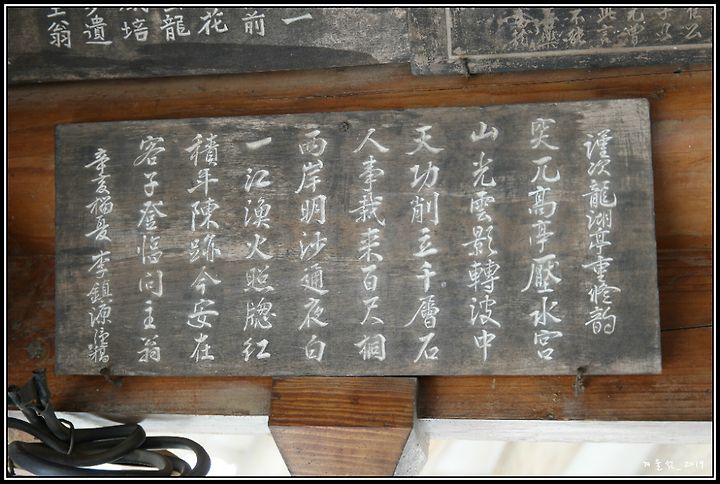 謹次龍湖亭重修韵
突兀高亭壓水宮
山光雲影轉波中
天功削立千層石
人事栽来百尺桐
両岸明沙通夜白
一江漁火照牕紅
積年陳跡今安在
客子登臨问主翁
辛亥榴夏 李鎭源謹稿
元謂
此言
不能
一
前
花
龍
培
遺
主翁
2019